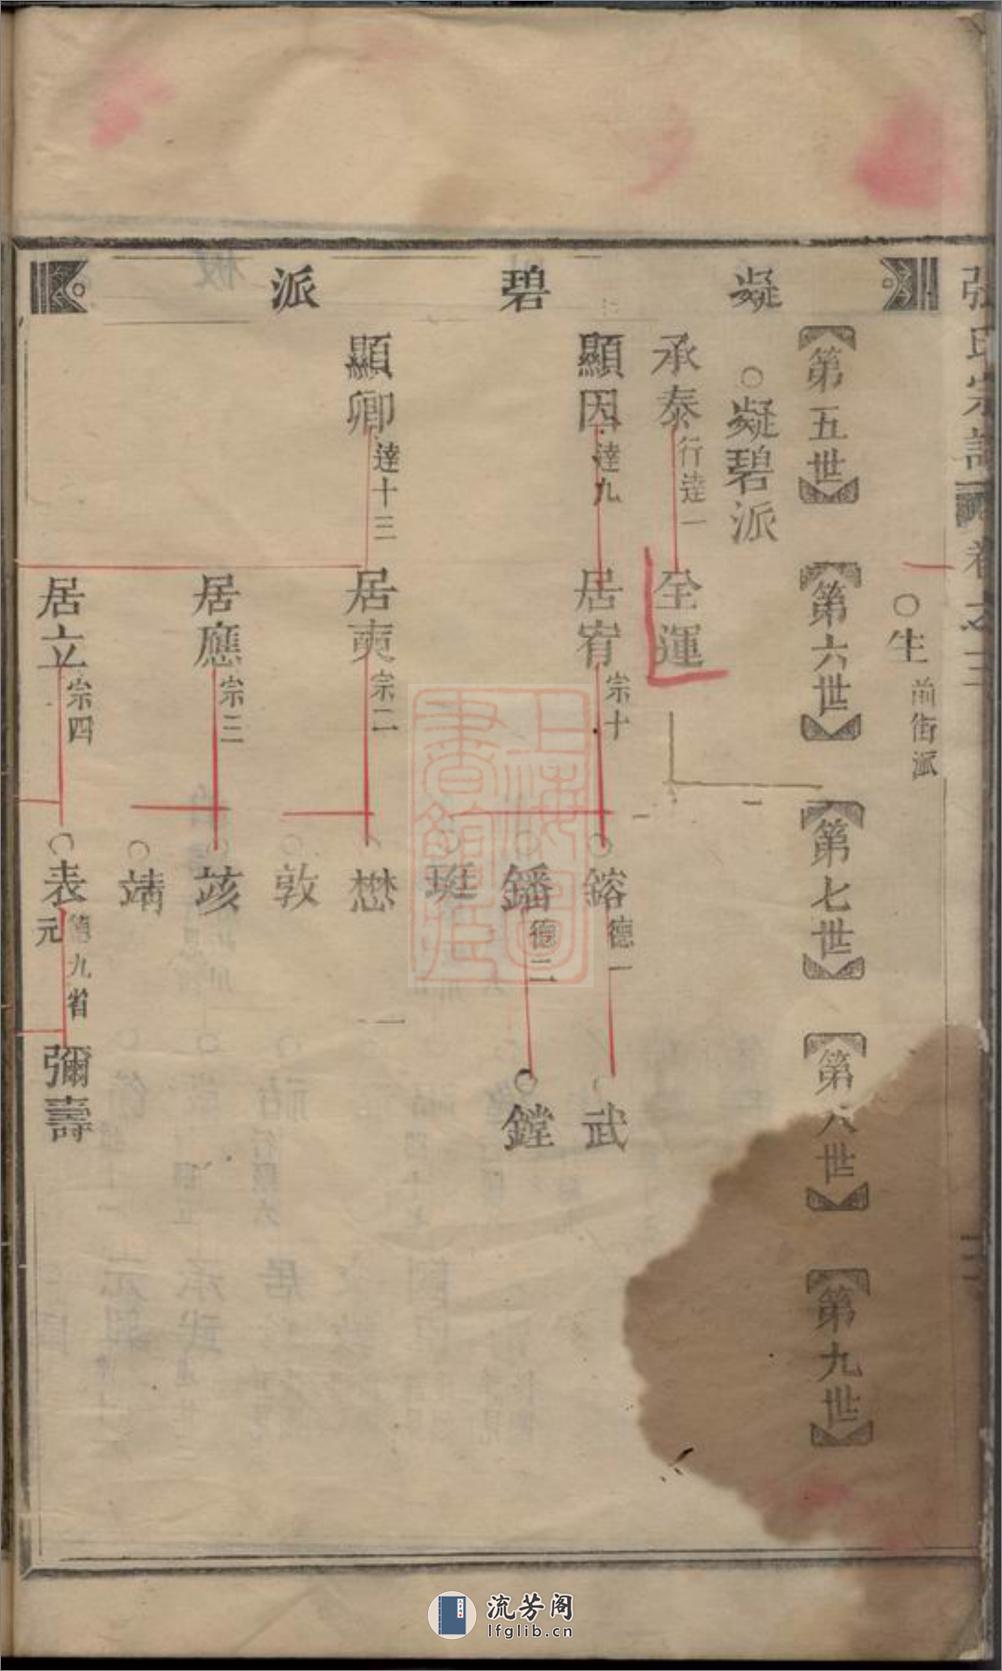 張氏宗譜 卷之三
凝碧派
生 前街派
第五世
第六世
第七世
第八世
第九世
凝碧派
承泰 行達一
全運
顯因 達九
居宥 宗十
鎔 德一
武
鐇 德二
鏜
珽
顯卿 達十三
居奭 宗二
懋
敦
居應 宗三
荄
靖
居立 宗四
表 德九省元
彌壽
上海圖書館藏
流芳阁
lfglib.cn